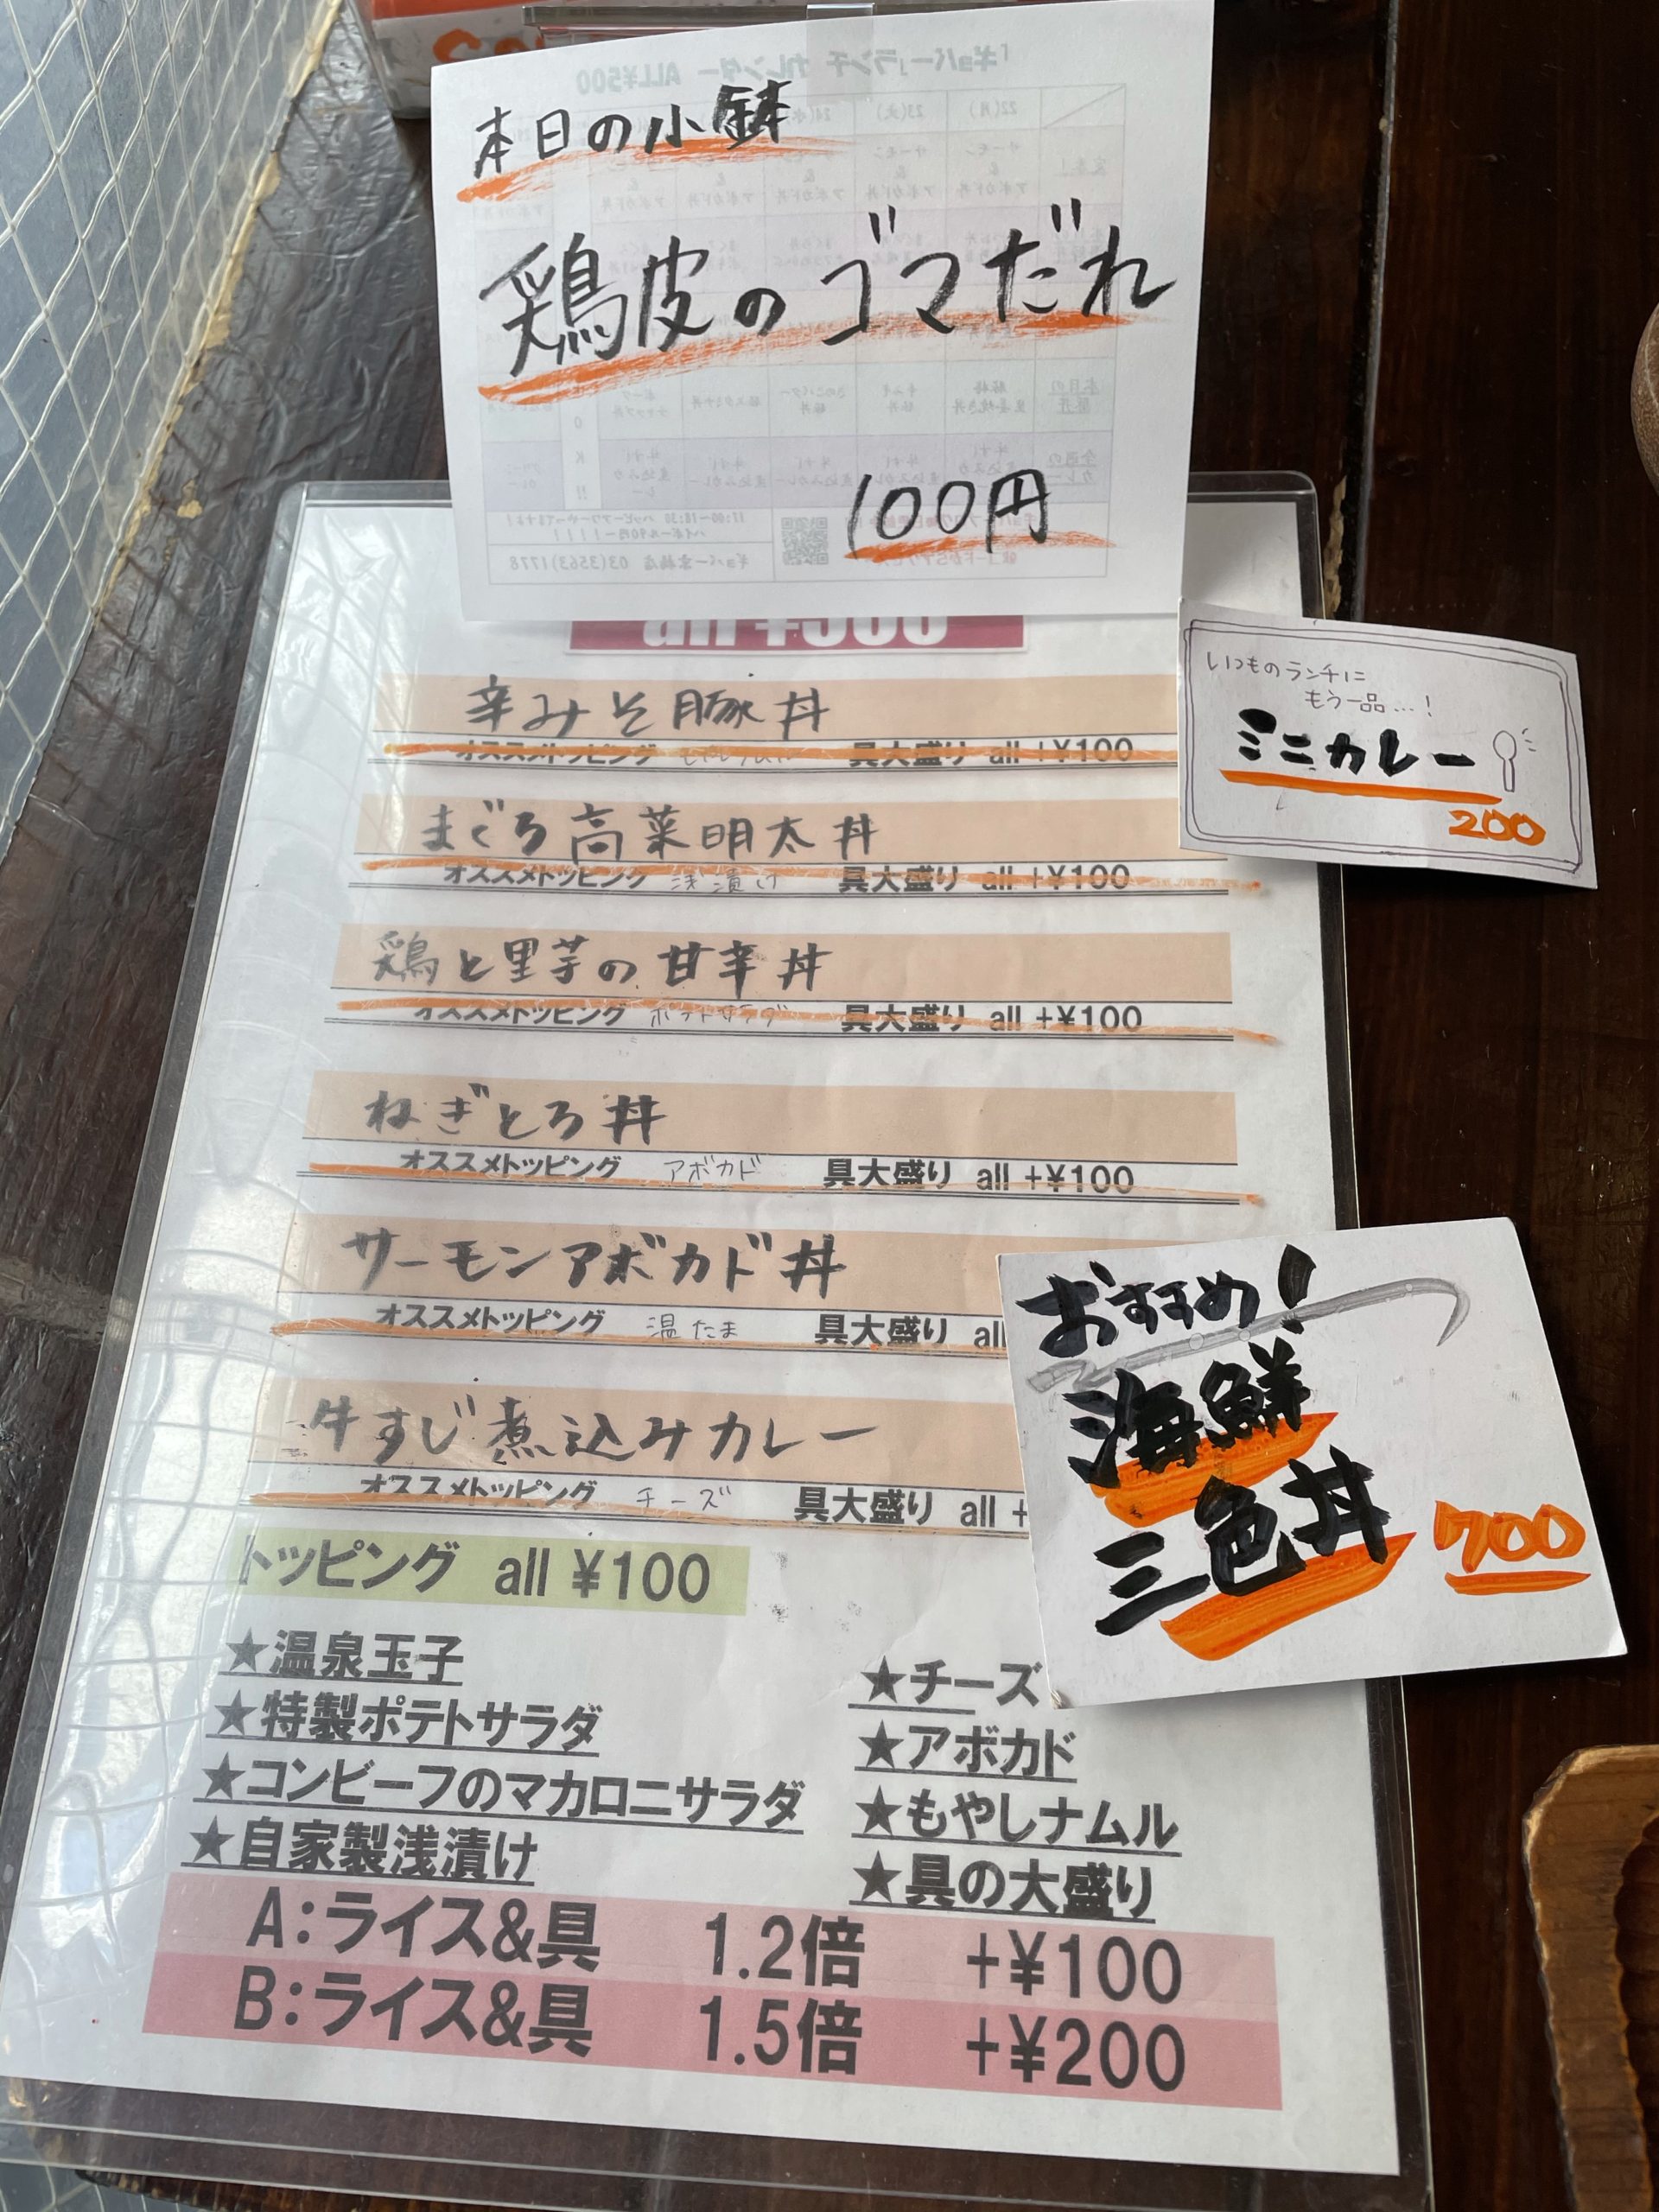 本日の小鉢
鶏皮のゴマだれ
100円
all ¥500
辛みそ豚丼
オススメトッピング 具大盛り all +¥100
まぐろ高菜明太丼
オススメトッピング 浅漬け 具大盛り all +¥100
鶏と里芋の甘辛丼
オススメトッピング ポテトサラダ 具大盛り all +¥100
ねぎとろ丼
オススメトッピング アボカド 具大盛り all +¥100
サーモンアボカド丼
オススメトッピング 温たま 具大盛り all
牛すじ煮込みカレー
オススメトッピング チーズ 具大盛り all +
いつものランチに
もう一品…!
ミニカレー
200
おすすめ!
海鮮
三色丼
700
トッピング all ¥100
★温泉玉子
★特製ポテトサラダ
★コンビーフのマカロニサラダ
★自家製浅漬け
★チーズ
★アボカド
★もやしナムル
★具の大盛り
A:ライス&具 1.2倍 +¥100
B:ライス&具 1.5倍 +¥200